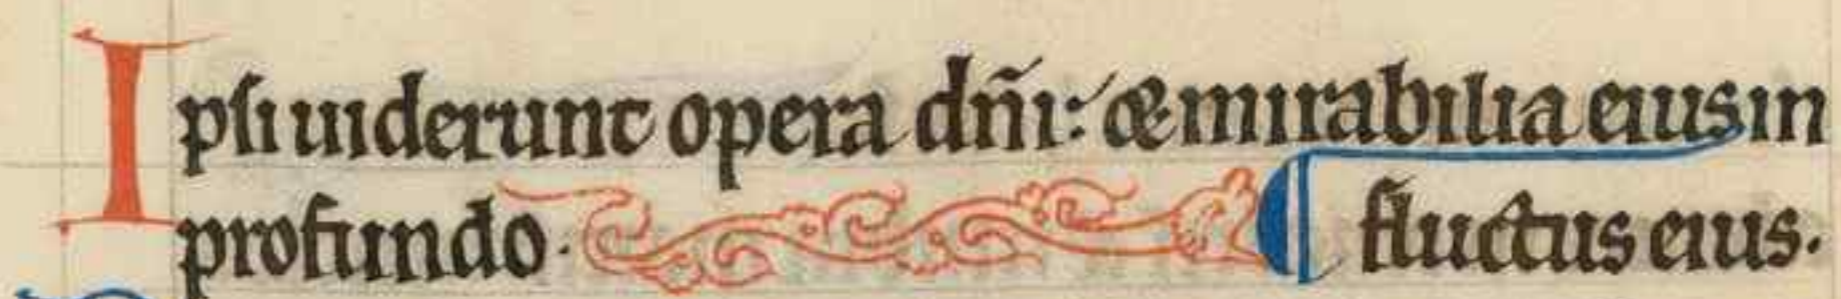 Ipsi uiderunt opera dñi: & mirabilia eius in
profundo. fluctus eius.